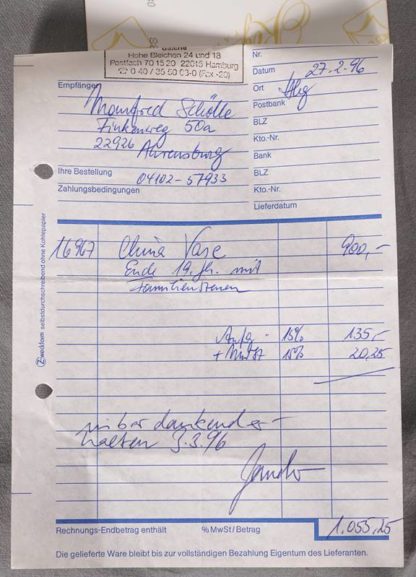 Hohe Bleichen 24 und 18
Postfach 70 15 20 · 22015 Hamburg
☎ 0 40 / 35 50 03-0 (Fax -20)
Empfänger
Manfred Schölle
Finkenweg 50a
22926 Ahrensburg
Ihre Bestellung 04102-57933
Zahlungsbedingungen
Nr.
Datum 27.2.96
Ort Hbg
Postbank
BLZ
Kto.-Nr.
Bank
BLZ
Kto.-Nr.
Lieferdatum
16967 China Vase 900,-
Ende 19. Jh. mit
Familienszenen
Aufg. - 15% 135,-
+ MwSt 15% 20,25
in bar dankend er-
halten 5.3.96
Rechnungs-Endbetrag enthält % MwSt / Betrag 1.055,25
Die gelieferte Ware bleibt bis zur vollständigen Bezahlung Eigentum des Lieferanten.
zweckform selbstdurchschreibend ohne Kohlepapier